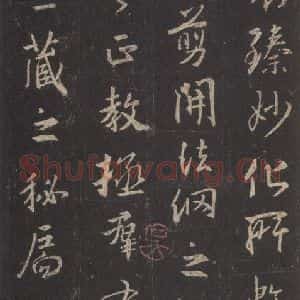 臻妙化所
剪開法網之
正教拯群
藏之秘扃
Shufawang.CN